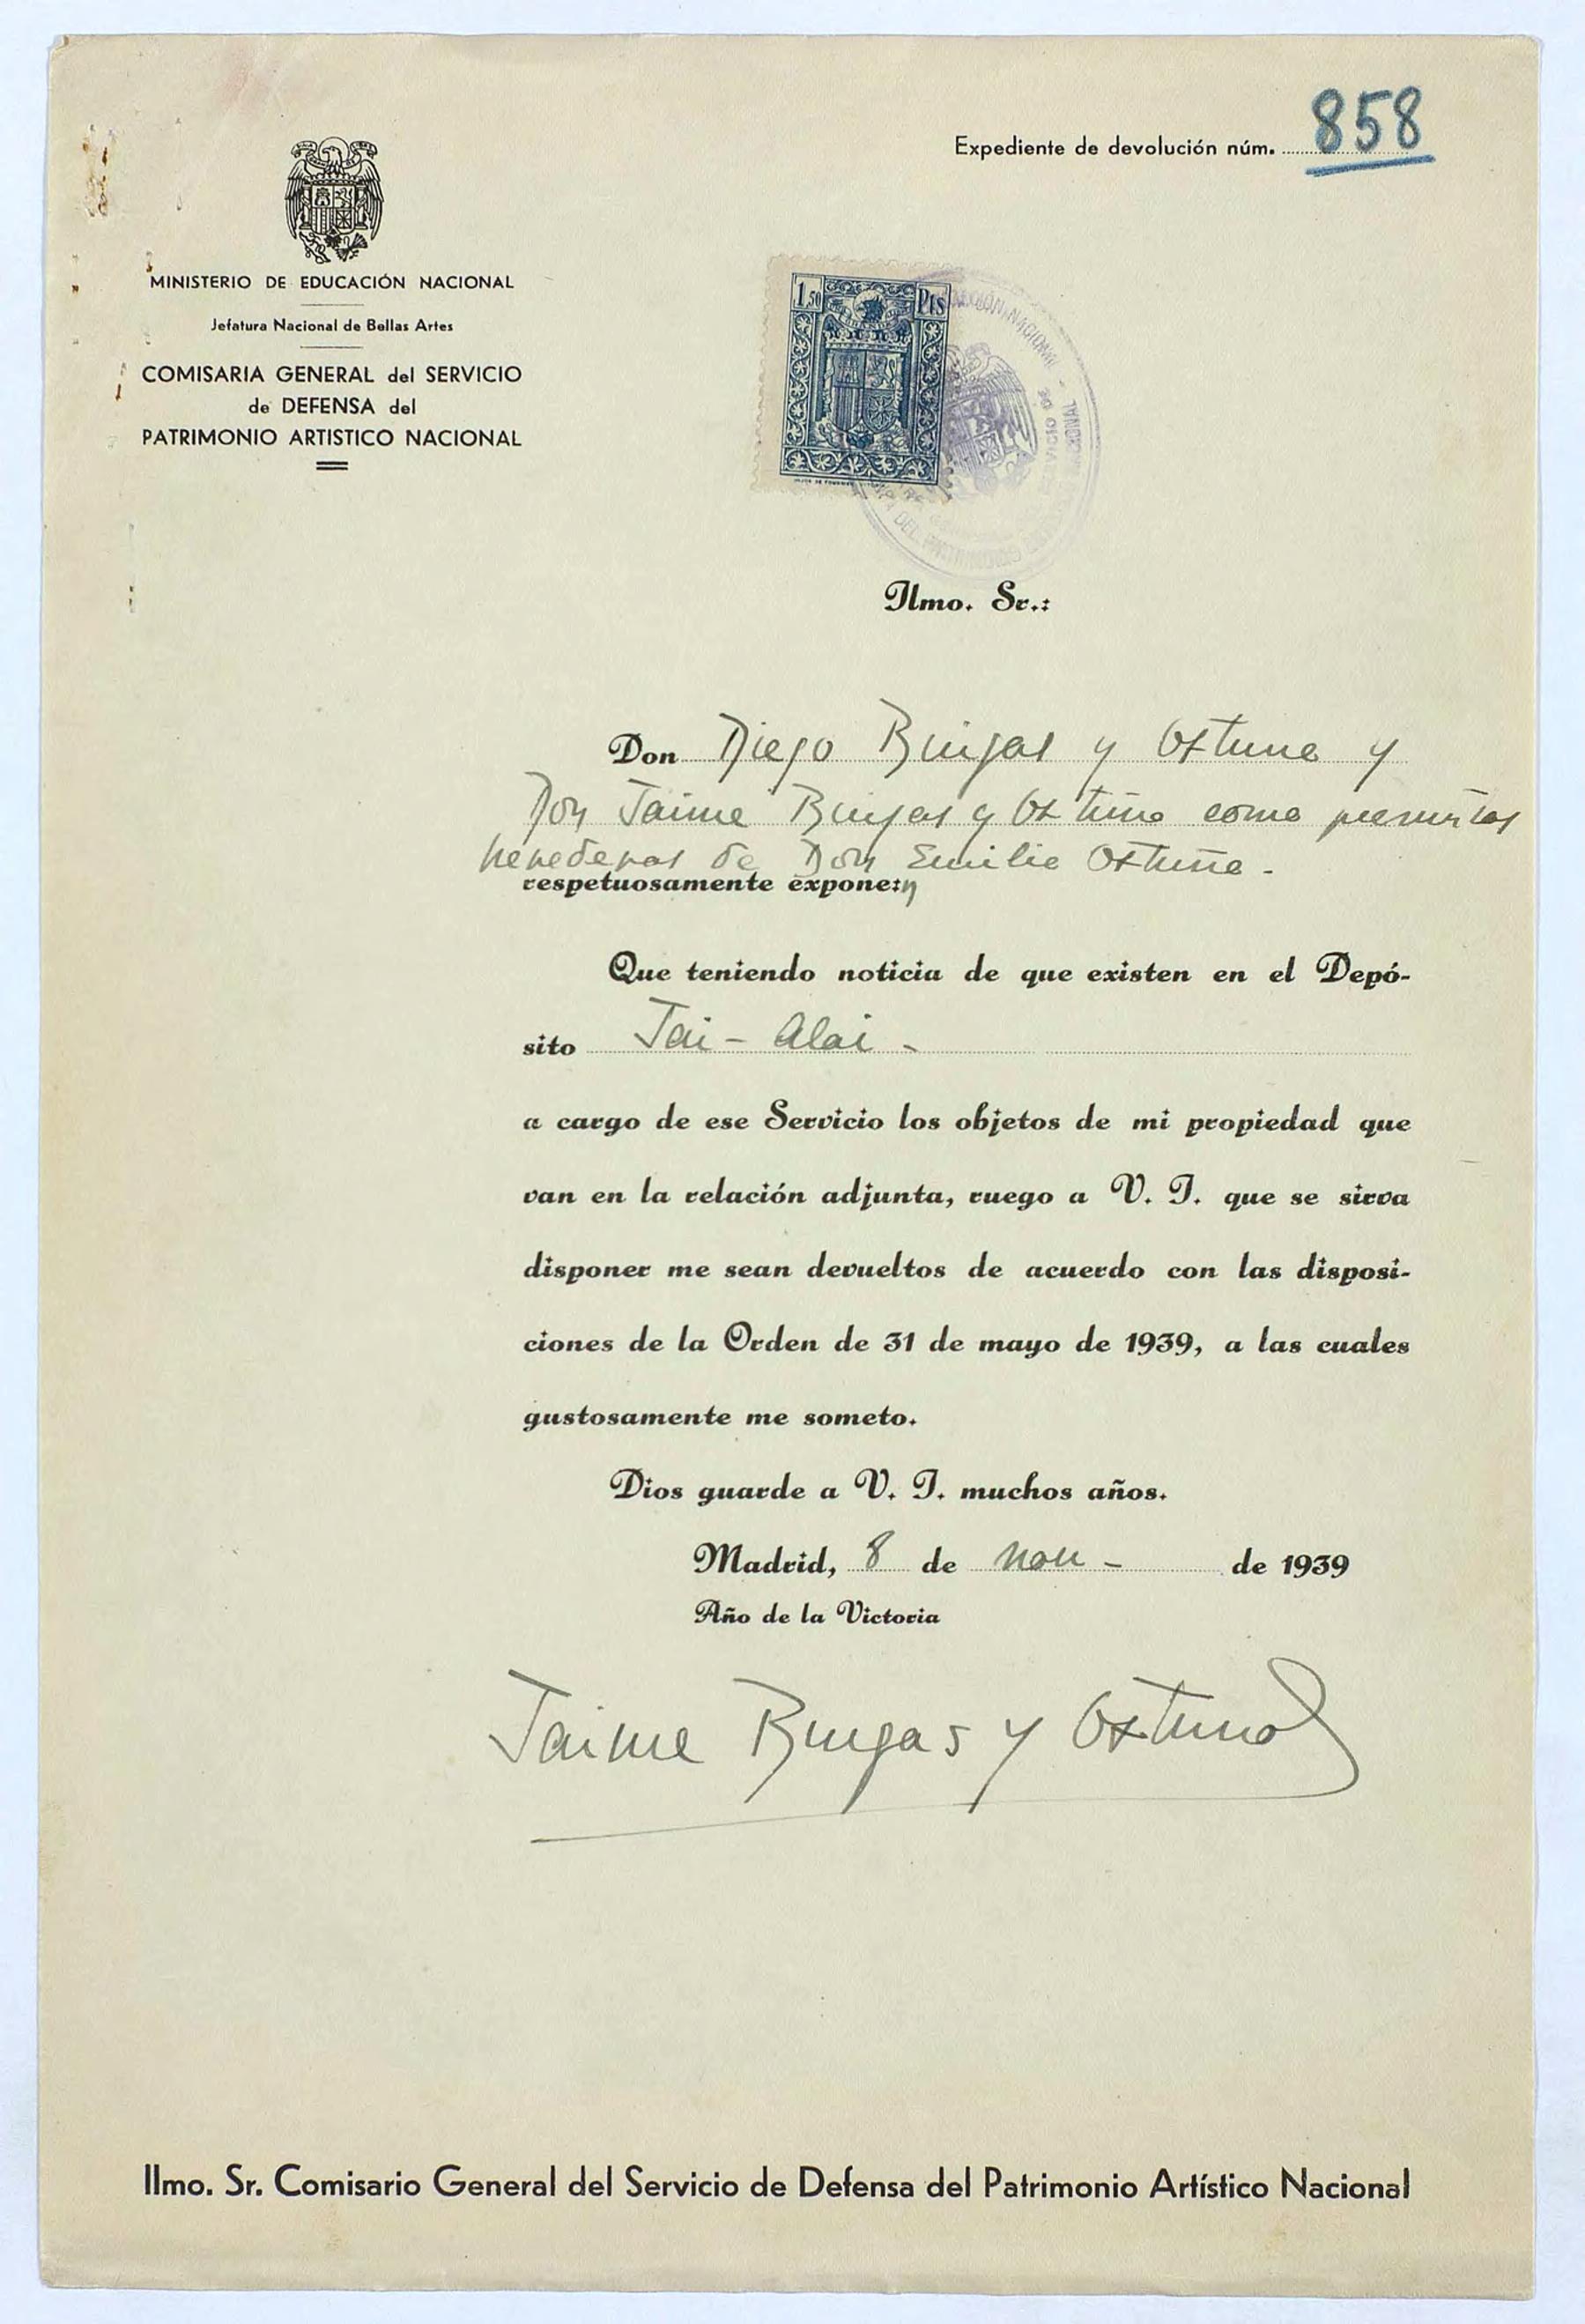 Expediente de devolución núm. 858
MINISTERIO DE EDUCACIÓN NACIONAL
Jefatura Nacional de Bellas Artes
COMISARIA GENERAL del SERVICIO
de DEFENSA del
PATRIMONIO ARTISTICO NACIONAL
1,50 Pts
Ilmo. Sr.:
Don Diego Buigas y Ortuño y
Don Jaime Buigas y Ortuño como presuntos
herederos de Don Emilio Ortuño -
respetuosamente expone:n
Que teniendo noticia de que existen en el Depó-
sito Jai - Alai -
a cargo de ese Servicio los objetos de mi propiedad que
van en la relación adjunta, ruego a V. I. que se sirva
disponer me sean devueltos de acuerdo con las disposi-
ciones de la Orden de 31 de mayo de 1939, a las cuales
gustosamente me someto.
Dios guarde a V. I. muchos años.
Madrid, 8 de nov - de 1939
Año de la Victoria
Jaime Buigas y Ortuño
Ilmo. Sr. Comisario General del Servicio de Defensa del Patrimonio Artístico Nacional